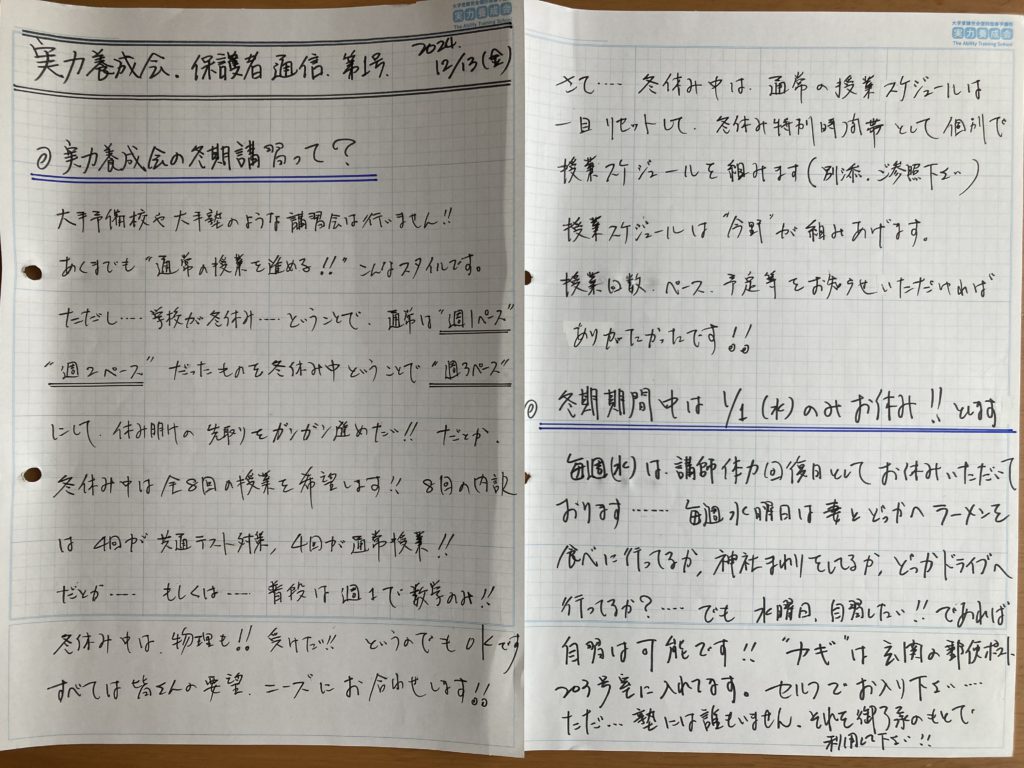 実力養成会
実力養成会. 保護者通信. 第1号. 2024. 12/13(金)
実力養成会の冬期講習って?
大手予備校や大手塾のような講習会は行いません!!
あくまでも "通常の授業を進める!!" こんなスタイルです。
ただし.... 学校が冬休み.... ということで、通常は "週1ペース"
"週2ペース" だったものを冬休み中ということで "週3ペース"
にして、休み明けの先取りをガンガン進めたい!! だとか、
冬休み中は全8回の授業を希望します!! 8回の内訳
は 4回が共通テスト対策, 4回が通常授業!!
だとか.... もしくは.... 普段は週1で数学のみ!!
冬休み中は、物理も!! 受けたい!! というのでもOKです
すべては皆さんの要望、ニーズにお合わせします!!
実力養成会
The Ability Training School
さて.... 冬休み中は、通常の授業スケジュールは
一旦リセットして、冬休み特別時間帯として個別で
授業スケジュールを組みます(別添、ご参照下さい)
授業スケジュールは "今野" が組みあげます。
授業回数、ペース、予定等をお知らせいただければ
ありがたかったです!!
冬期期間中は 1/1 (水) のみお休み!! とします
毎週(水)は、講師体力回復日としてお休みいただいて
おります...... 毎週水曜日は妻とどっかへラーメンを
食べに行ってるか, 神社まわりをしてるか, どっかドライブへ
行ってるか?.... でも 水曜日、自習したい!! であれば
自習は可能です!! "カギ" は玄関の郵便ポスト
203号室に入れてます。セルフでお入り下さい....
ただ... 塾には誰もいません、それを御了承のもとで
利用して下さい!!